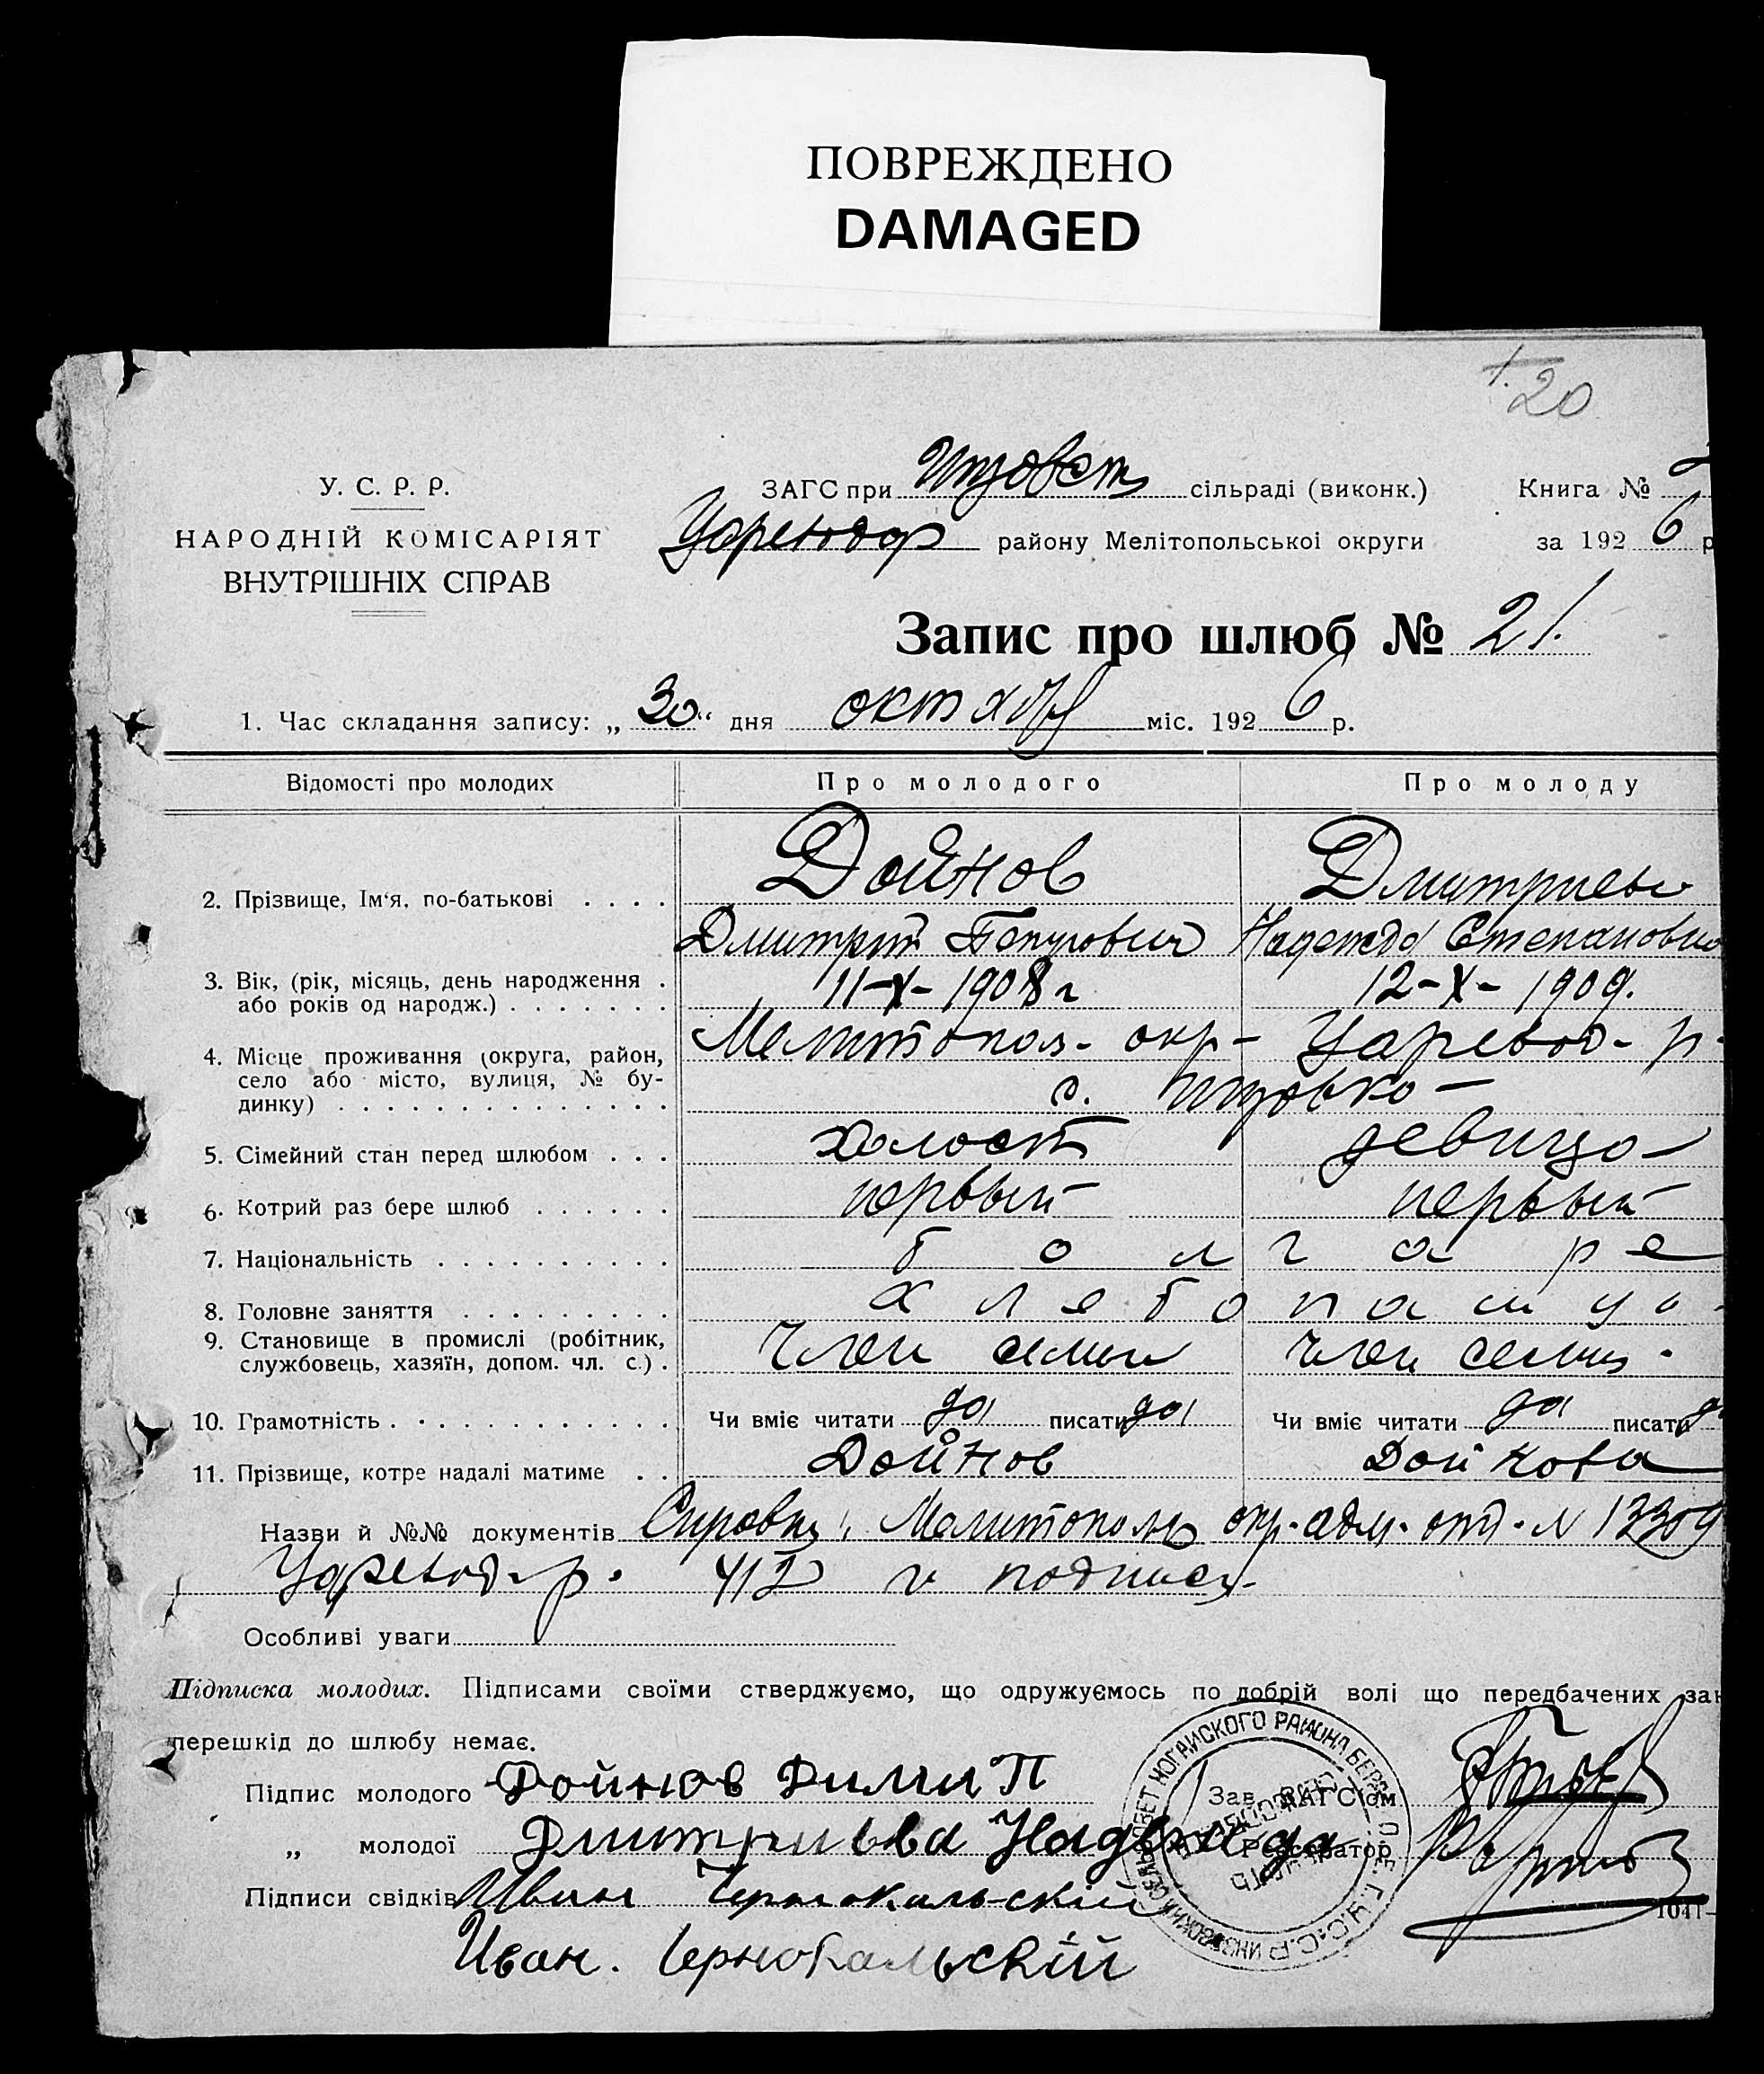 ПОВРЕЖДЕНО
DAMAGED
20
У. С. Р. Р.
НАРОДНІЙ КОМІСАРІЯТ
ВНУТРІШНІХ СПРАВ
ЗАГС при сільраді (виконк.) Книга №
району Мелітопольської округи за 192 6 р
Запис про шлюб № 21.
1. Час складання запису: „ 30 “ дня октября міс. 192 6 р.
Відомості про молодих Про молодого Про молоду
2. Прізвище, Ім'я, по-батькові . . . . Дойнов Дмитриева
Дмитрий Надежда Степановна
3. Вік, (рік, місяць, день народження . 11-X-1908 г 12-X-1909.
або років од народж.) . . . . . . .
4. Місце проживання (округа, район, Мелитопол. окр- Царевод- р.
село або місто, вулиця, № бу- с.
динку) . . . . . . . . . . . . . .
5. Сімейний стан перед шлюбом . . . холост девица
6. Котрий раз бере шлюб . . . . . . первый первый
7. Національність . . . . . . . . . . болгаре
8. Головне заняття . . . . . . . . . хлебопашц
9. Становище в промислі (робітник, член семьи член семьи.
службовець, хазяїн, допом. чл. с.) .
10. Грамотність . . . . . . . . . . . . Чи вміє читати да писати да Чи вміє читати да писати да
11. Прізвище, котре надалі матиме . . Дойнов Дойнова
Назви й №№ документів Справки: Мелитополь окр. адм. отд. № 13309
Царевод. р. 412 и подписи
Особливі уваги
Підписка молодих. Підписами своїми стверджуємо, що одружуємось по добрій волі що передбачених зак
перешкід до шлюбу немає.
Підпис молодого Дойнов Дими П Зав. ЗАГС'ом
„ молодої Дмитриева Надежда Реєстратор
Підписи свідків Иван Чернокальский
1041-
Иван. Чернокальскій